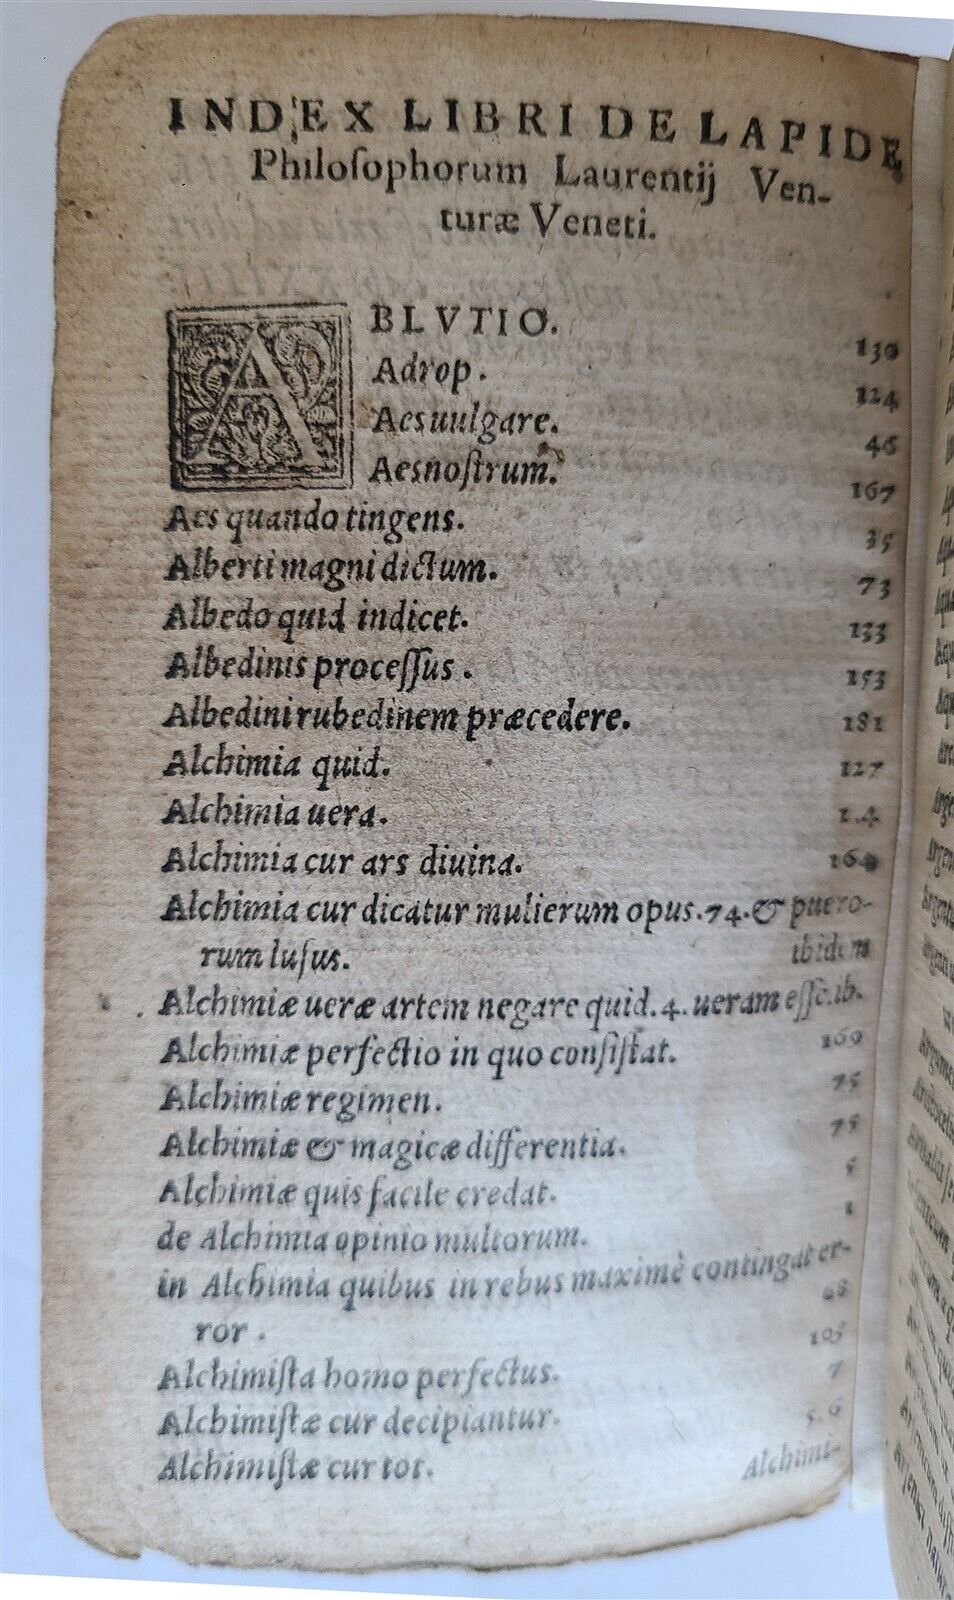 INDEX LIBRI DE LAPIDE
Philoſophorum Laurentij Ven-
turæ Veneti.
ABLVTIO. 130
Adrop. 124
Aes uulgare. 46
Aes noſtrum. 167
Aes quando tingens. 35
Alberti magni dictum. 73
Albedo quid indicet. 133
Albedinis proceſſus. 153
Albedini rubedinem præcedere. 181
Alchimia quid. 127
Alchimia uera. 1.4
Alchimia cur ars diuina. 164
Alchimia cur dicatur mulierum opus. 74. & puero-
rum luſus. ibidem
Alchimiæ ueræ artem negare quid. 4. ueram eſſe. ib.
Alchimiæ perfectio in quo conſiſtat. 169
Alchimiæ regimen. 75
Alchimiæ & magicæ differentia. 75
Alchimiæ quis facile credat. 5
de Alchimia opinio multorum. 1
in Alchimia quibus in rebus maximè contingat er-
ror. 68
Alchimiſta homo perfectus. 105
Alchimiſtæ cur decipiantur. 7
Alchimiſtæ cur tot. 5.6
Alchimi-